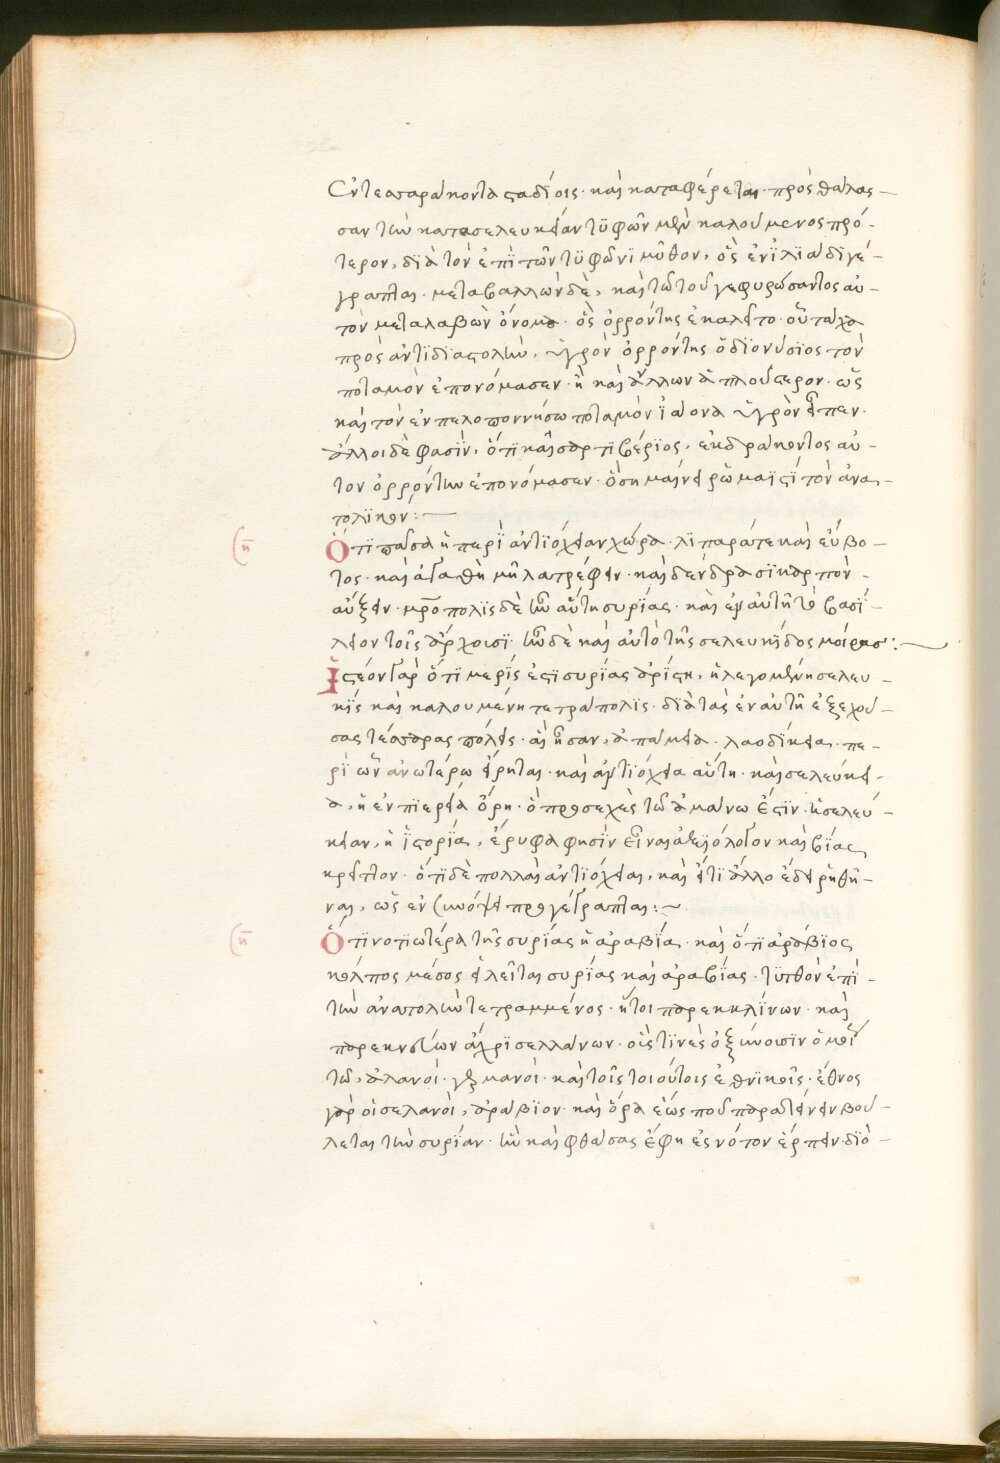 ἐν τεσσαράκοντα σταδίοις· καὶ καταφέρεται πρὸς θάλασ-
σαν τὴν κατὰ σελευκείαν τυφῶν μὲν καλούμενος πρό-
τερον, διὰ τὸν ἐπὶ τῶν τυφῶνι μῦθον, ὃς ἐν ϊλιάδι γέ-
γραπται· μεταβαλλὼν δὲ, καὶ τῶ τοῦ γεφυρώσαντος αὐ-
τὸν μεταλαβὼν ὄνομα· ὃς ὀρρόντης ἐκαλεῖτο· οὗ τάχα
πρὸς ἀντιδιαστολὴν, ὑγρὸν ὀρρόντης ὁ διονύσιος τὸν
ποταμὸν ἐπονόμασεν· ἢ καὶ ἄλλων ἁπλούστερον· ὡς
καὶ τὸν ἐν πελοποννήσω ποταμὸν ϊάονα ὑγρὸν εἶπεν·
ἄλλοι δὲ φασὶν, ὅτι καῖσαρ τιβέριος, ἐκ δράκοντος αὐ-
τὸν ὀρρόντην ἐπονόμασεν· ὃ σημαίνει ῥωμαϊστὶ τὸν ἀνα-
τολικόν:
Ὅτι πᾶσα ἡ περὶ ἀντιόχειαν χώρα· λιπαρά τε καὶ εὔβο-
τος· καὶ ἀγαθὴ μῆλα τρέφειν· καὶ δένδρασι καρπὸν
αὔξειν· μρόπολις δὲ ἦν αὕτη συρίας· καὶ ἐν αὐτῆ τὸ βασί-
λειον τοῖς ἄρχουσι· ἦν δὲ καὶ αὐτὸ τῆς σελευκίδος μοίρας:
Ἰστέον γὰρ ὅτι μερίς ἐστι συρίας ἀρίστη, ἡ λεγομένη σελευ-
κὶς καὶ καλουμένη τετράπολις· διὰ τὰς ἐν αὐτῆ ἐξεχού-
σας τέσσαρας πόλεις· αἳ ἦσαν, ἀπάμεια· λαοδίκεια· πε-
ρὶ ὧν ἀνωτέρω εἴρηται· καὶ ἀντιόχεια αὕτη· καὶ σελεύκει-
α, ἡ ἐν πιερεία ὄρη· ὃ προσεχὲς τῶ ἀμάνω ἐστίν· ἣ σελεύ-
κειαν, ἡ ϊστορία, ἔρυμα φησὶν εἶναι ἀξιόλογον καὶ βίας
κρεῖττον· ὅτι δὲ πολλαὶ ἀντιόχειαι, καὶ εἴ τι ἄλλο ἔδει ῥηθῆ-
ναι, ὡς ἐν συνόψει προγέγραπται:
Ὅτι νοτιωτέρα τῆς συρίας ἡ ἀραβία· καὶ ὅτι ἀράβιος
κόλπος μέσος εἰλεῖται συρίας καὶ ἀραβίας· τυτθὸν ἐπὶ
τὴν ἀνατολὴν τετραμμένος· ἤτοι παρεκκλίνων· καὶ
παρεκνεύων ἄχρις ἐλλάνων· οἵς τινὲς ὀξύνουσιν ὁμοί
τῶ, ἀλανοὶ· γερμανοὶ· καὶ τοῖς τοιούτοις ἐθνικοῖς· ἔθνος
γὰρ οἱ σελανοὶ, ἀράβιον· καὶ ὅρα ἕως ποῦ παρατείνειν βού-
λεται τὴν συρίαν· ἣν καὶ φθάσας ἔφη ἐς νότον ἕρπειν· διὸ